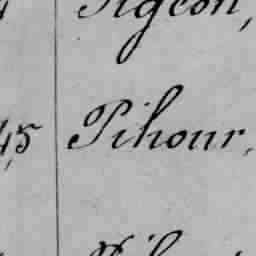 Pigeon,
45 Pihour,